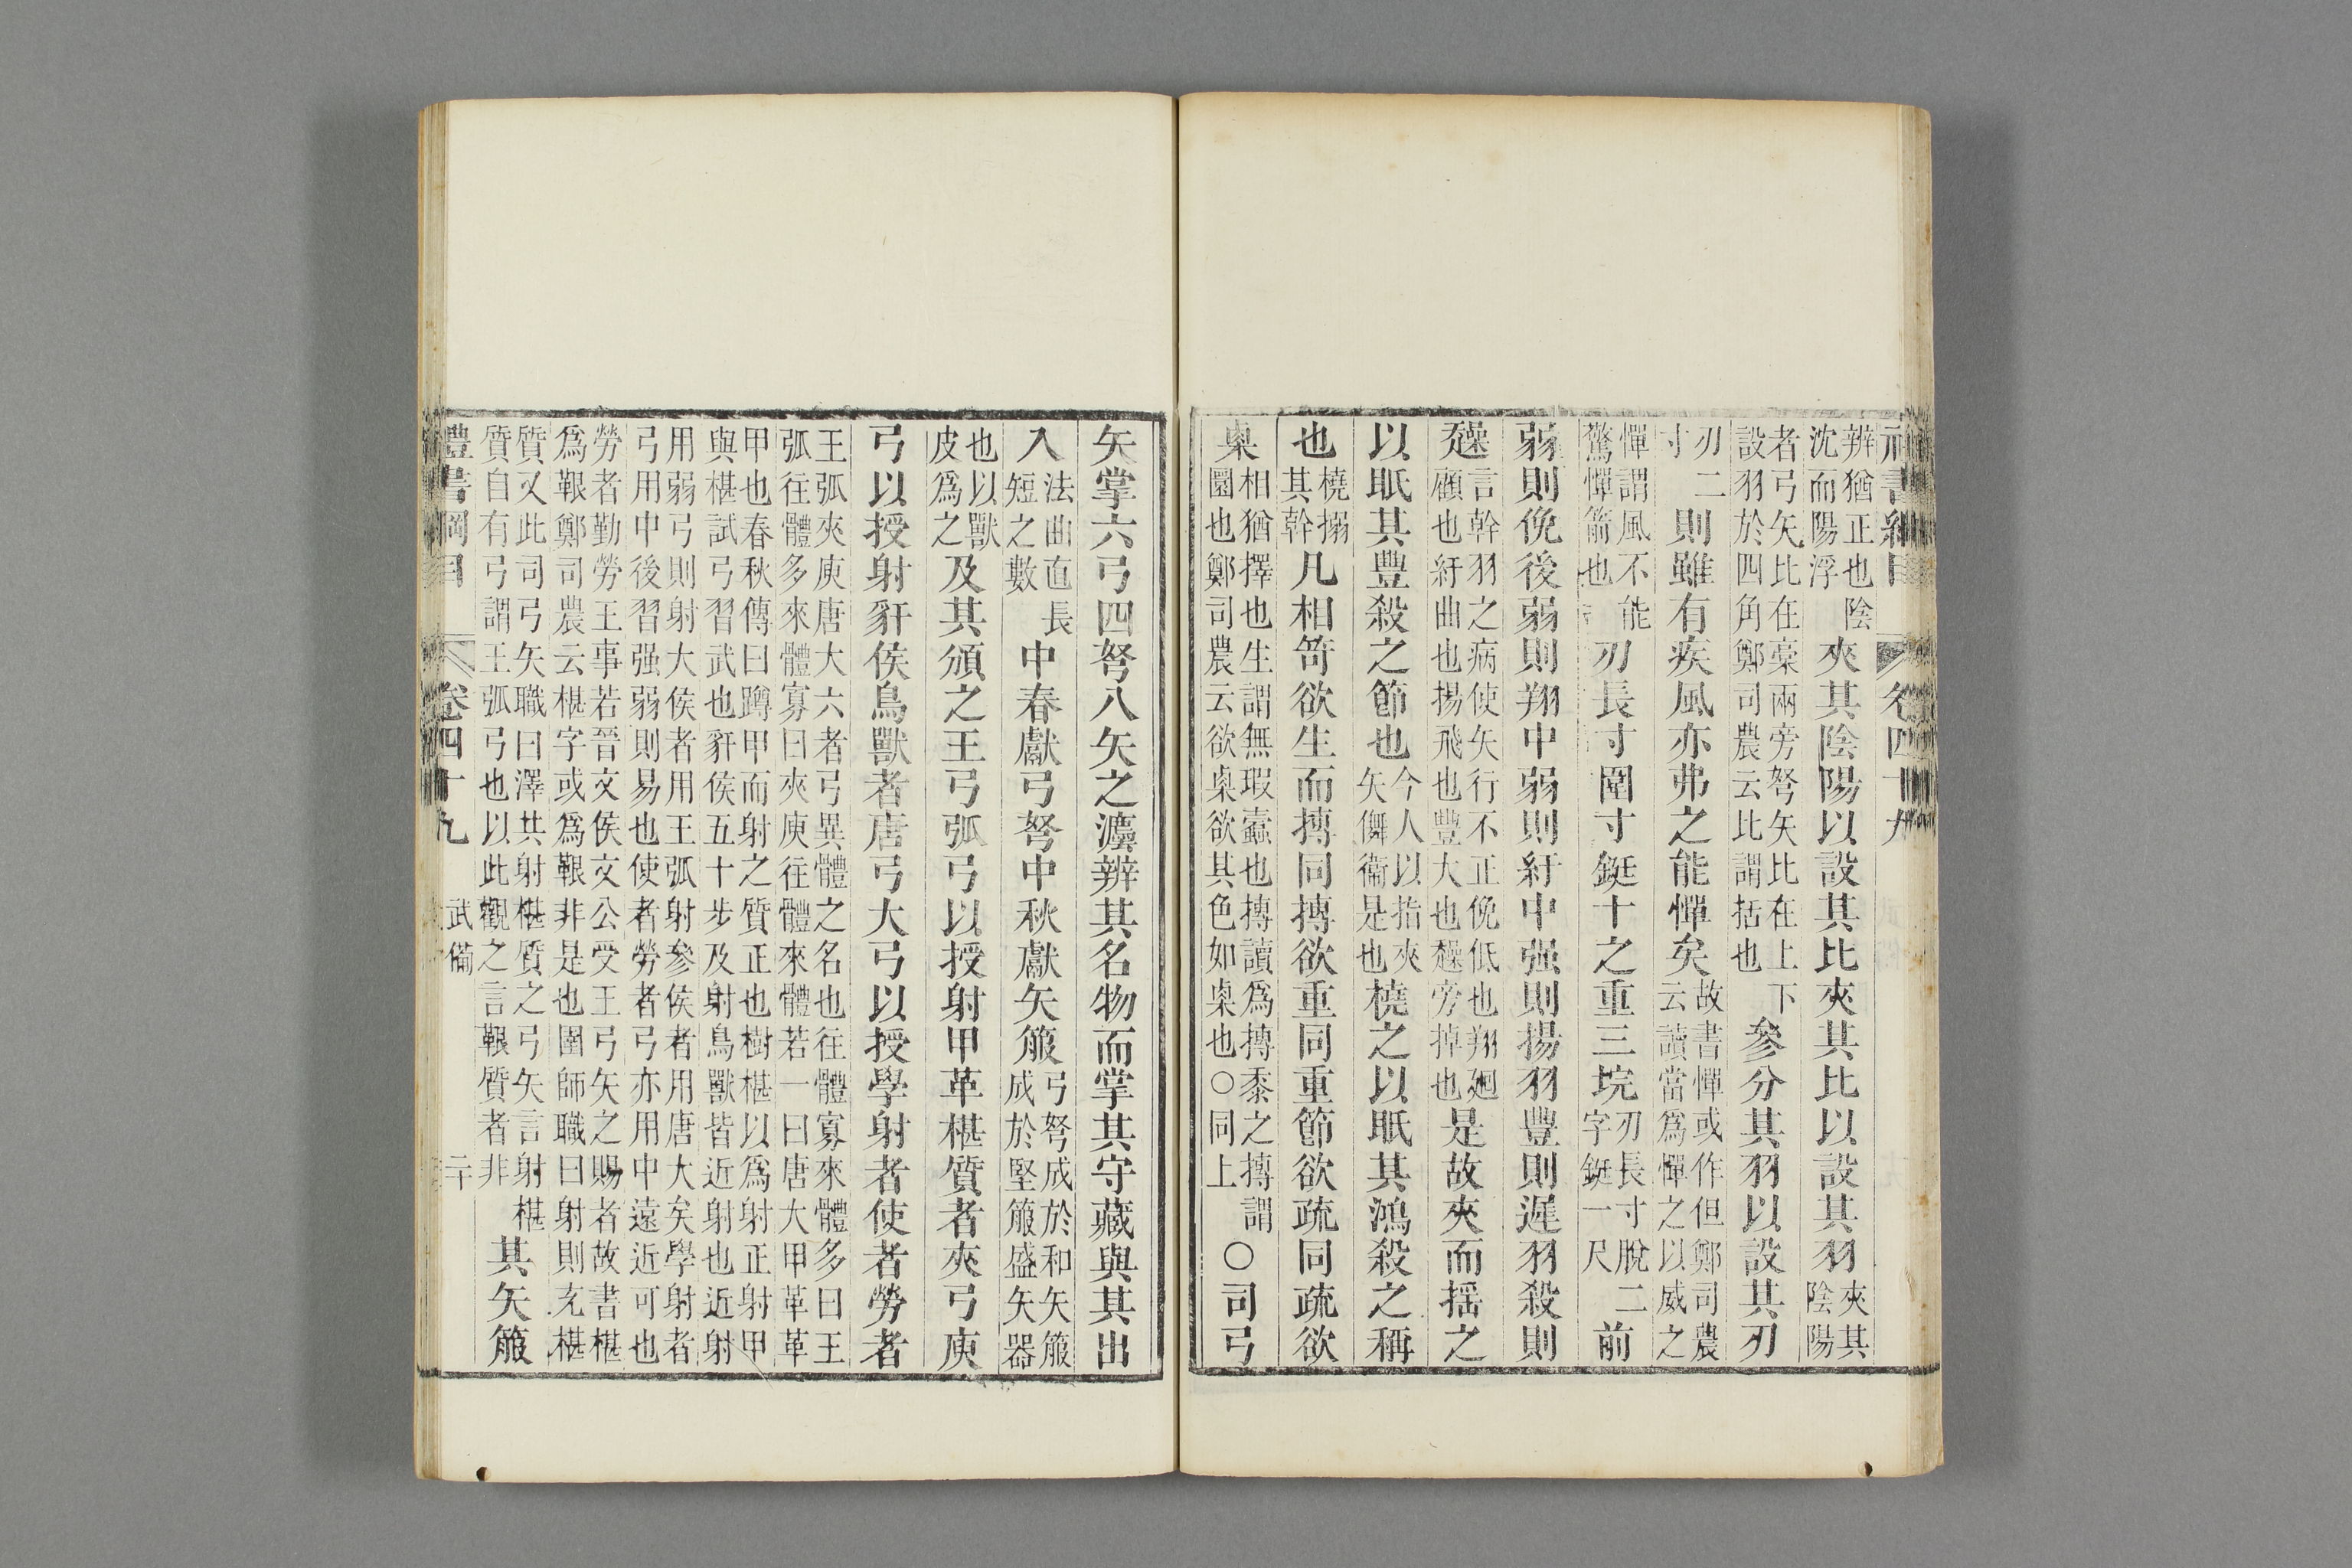 禮書綱目 卷四十九
辨猶正也陰沈而陽浮夾其陰陽以設其比夾其比以設其羽夾其陰陽
者弓矢比在槀兩旁弩矢比在上下設羽於四角鄭司農云比謂括也參分其羽以設其刃
刃二寸則雖有疾風亦弗之能憚矣故書憚或作但鄭司農云讀當為憚之以威之
憚謂風不能驚憚箭也刃長寸圍寸鋌十之重三垸刃長寸脫二字鋌一尺前
弱則俛後弱則翔中弱則紆中强則揚羽豐則遲羽殺則
趮言幹羽之病使矢行不正俛低也翔廻顧也紆曲也揚飛也豐大也趮旁掉也是故夾而揺之
以眡其豐殺之節也今人以指夾矢儛衞是也橈之以眡其鴻殺之稱
也橈搦其幹凡相笴欲生而摶同摶欲重同重節欲疏同疏欲
㮚相猶擇也生謂無瑕蠹也摶讀為摶黍之摶謂圜也鄭司農云欲㮚欲其色如㮚也○同上○司弓
矢掌六弓四弩八矢之灋辨其名物而掌其守藏與其出
入法曲直長短之數中春獻弓弩中秋獻矢箙弓弩成於和矢箙成於堅箙盛矢器
也以獸皮為之及其頒之王弓弧弓以授射甲革椹質者夾弓庾
弓以授射豻侯鳥獸者唐弓大弓以授學射者使者勞者
王弧夾庾唐大六者弓異體之名也往體寡來體多曰王弧往體多來體寡曰夾庾往體來體若一曰唐大甲革革
甲也春秋傳曰蹲甲而射之質正也樹椹以為射正射甲與椹試弓習武也豻侯五十步及射鳥獸皆近射也近射
用弱弓則射大侯者用王弧射參侯者用唐大矣學射者弓用中後習强弱則易也使者勞者弓亦用中遠近可也
勞者勤勞王事若晉文侯文公受王弓矢之賜者故書椹為䩞鄭司農云椹字或為䩞非是也圉師職曰射則充椹
質又此司弓矢職曰澤共射椹質之弓矢言射椹質自有弓謂王弧弓也以此觀之言䩞質者非其矢箙
禮書綱目 卷四十九 武備 二十